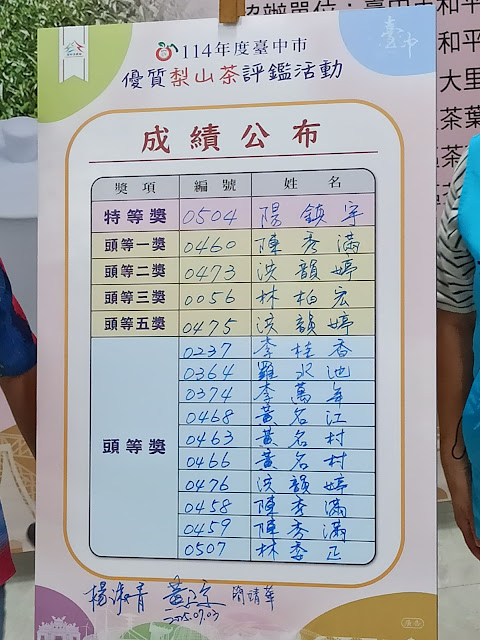 協辦單位：臺中市和平
和平
大里
茶葉
臺中
114年度臺中市
優質梨山茶評鑑活動
成績公布
獎項 編號 姓名
特等獎 0504 陽鎮宇
頭等一獎 0460 陳秀滿
頭等二獎 0473 洪韻婷
頭等三獎 0056 林柏宏
頭等五獎 0475 洪韻婷
頭等獎
0237 李桂香
0364 羅水池
0374 李萬年
0468 黃名江
0463 黃名村
0466 黃名村
0476 洪韻婷
0458 陳秀滿
0459 陳秀滿
0507 林季正
楊淑青
2025.07.03
廣告